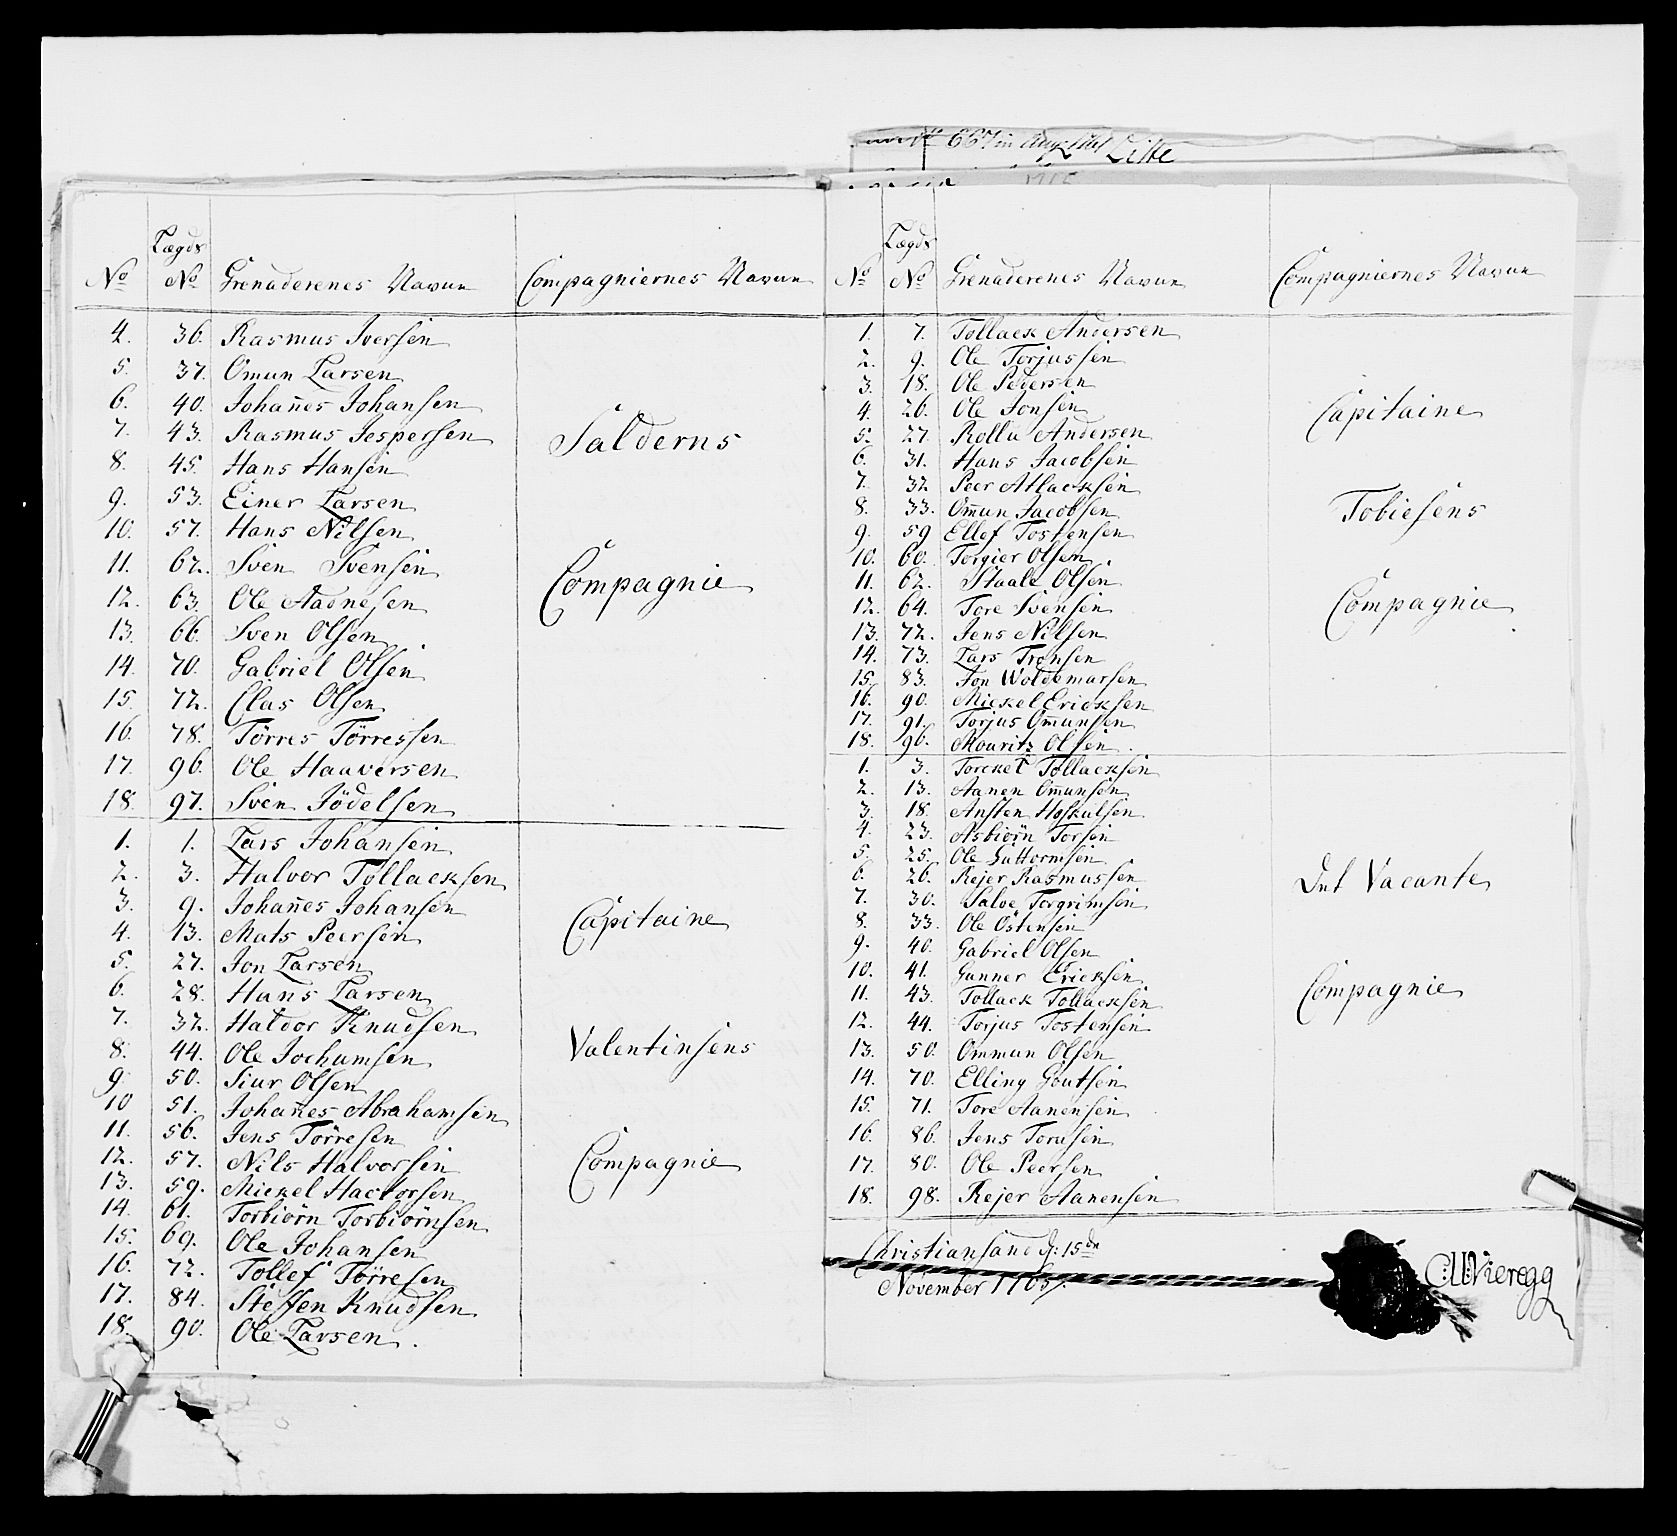 Liste
Lægds
No No Grenaderenes Navne Compagniernes Navne
4. 36. Rasmus Iversen
5. 37. Omun Larsen
6. 40. Johañes Johansen
7. 43. Rasmus Jespersen
8. 45. Hans Hansen
9. 53. Einer Larsen
10. 57. Hans Nilsen
11. 62. Sven Svensen
12. 63. Ole Aadnesen
13. 66. Sven Olsen
14. 70. Gabriel Olsen
15. 72. Clas Olsen
16. 78. Törres Törressen
17. 96. Ole Haaversen
18. 97. Sven Jödelsen
Salderns
Compagnie
1. 1. Lars Johansen
2. 3. Halvor Tollacksen
3. 9. Johañes Johansen
4. 13. Mats Peersen
5. 27. Jon Larsen
6. 28. Hans Larsen
7. 32. Haldor Knudsen
8. 44. Ole Jochumsen
9. 50. Siur Olsen
10 51. Johañes Abrahamsen
11. 56. Jens Törresen
12. 57. Nils Halvorsen
13. 59. Mickel Hactorsen
14. 61. Torbiörn Torbiörnsen
15. 69. Ole Johansen
16. 72. Tollef Törresen
17. 84. Steffen Knudsen
18. 90. Ole Larsen.
Capitaine
Valentinsens
Compagnie
Lægds
No No Grenaderenes Navne Compagniernes Navne
1. 7. Tollack Andersen
2. 9. Ole Torjussen
3. 18. Ole Pedersen
4. 26. Ole Jonsen
5. 27. Rolle Andersen
6. 31. Hans Jacobsen
7. 32 Peer Atlacksen
8. 33. Om̃un Jacobsen
9. 59 Ellef Tostensen
10. 60. Torgier Olsen
11. 62. Staale Olsen
12. 64. Tore Svensen
13. 72. Jens Nilsen
14. 73. Lars Tronsen
15. 83. Jon Woldemarsen
16. 90. Mickel Ericksen
17. 91. Torjus Om̃unsen
18. 96. Mouritz Olsen.
Capitaine
Tobiesens
Compagnie
1. 3. Torckel Tollacksen
2. 13. Aanen Om̃unsen
3. 18. Ansten Hoskulsen
4. 23. Asbiörn Torsen
5. 25. Ole Guttormsen
6. 26. Rejer Rasmussen
7. 30. Salve Torgrimsen
8. 33. Ole Östensen
9. 40. Gabriel Olsen
10. 41. Gunner Ericksen
11. 43. Tollack Tollacksen
12. 44. Torjus Tostensen
13. 50. Ommun Olsen
14. 70. Elling Goutsen
15. 71. Tore Aanensen
16. 86. Jens Toresen
17. 80. Ole Peersen
18. 98. Rejer Aanensen
Det Vacante
Compagnie
Christiansand d: 15de
November
Vieregg